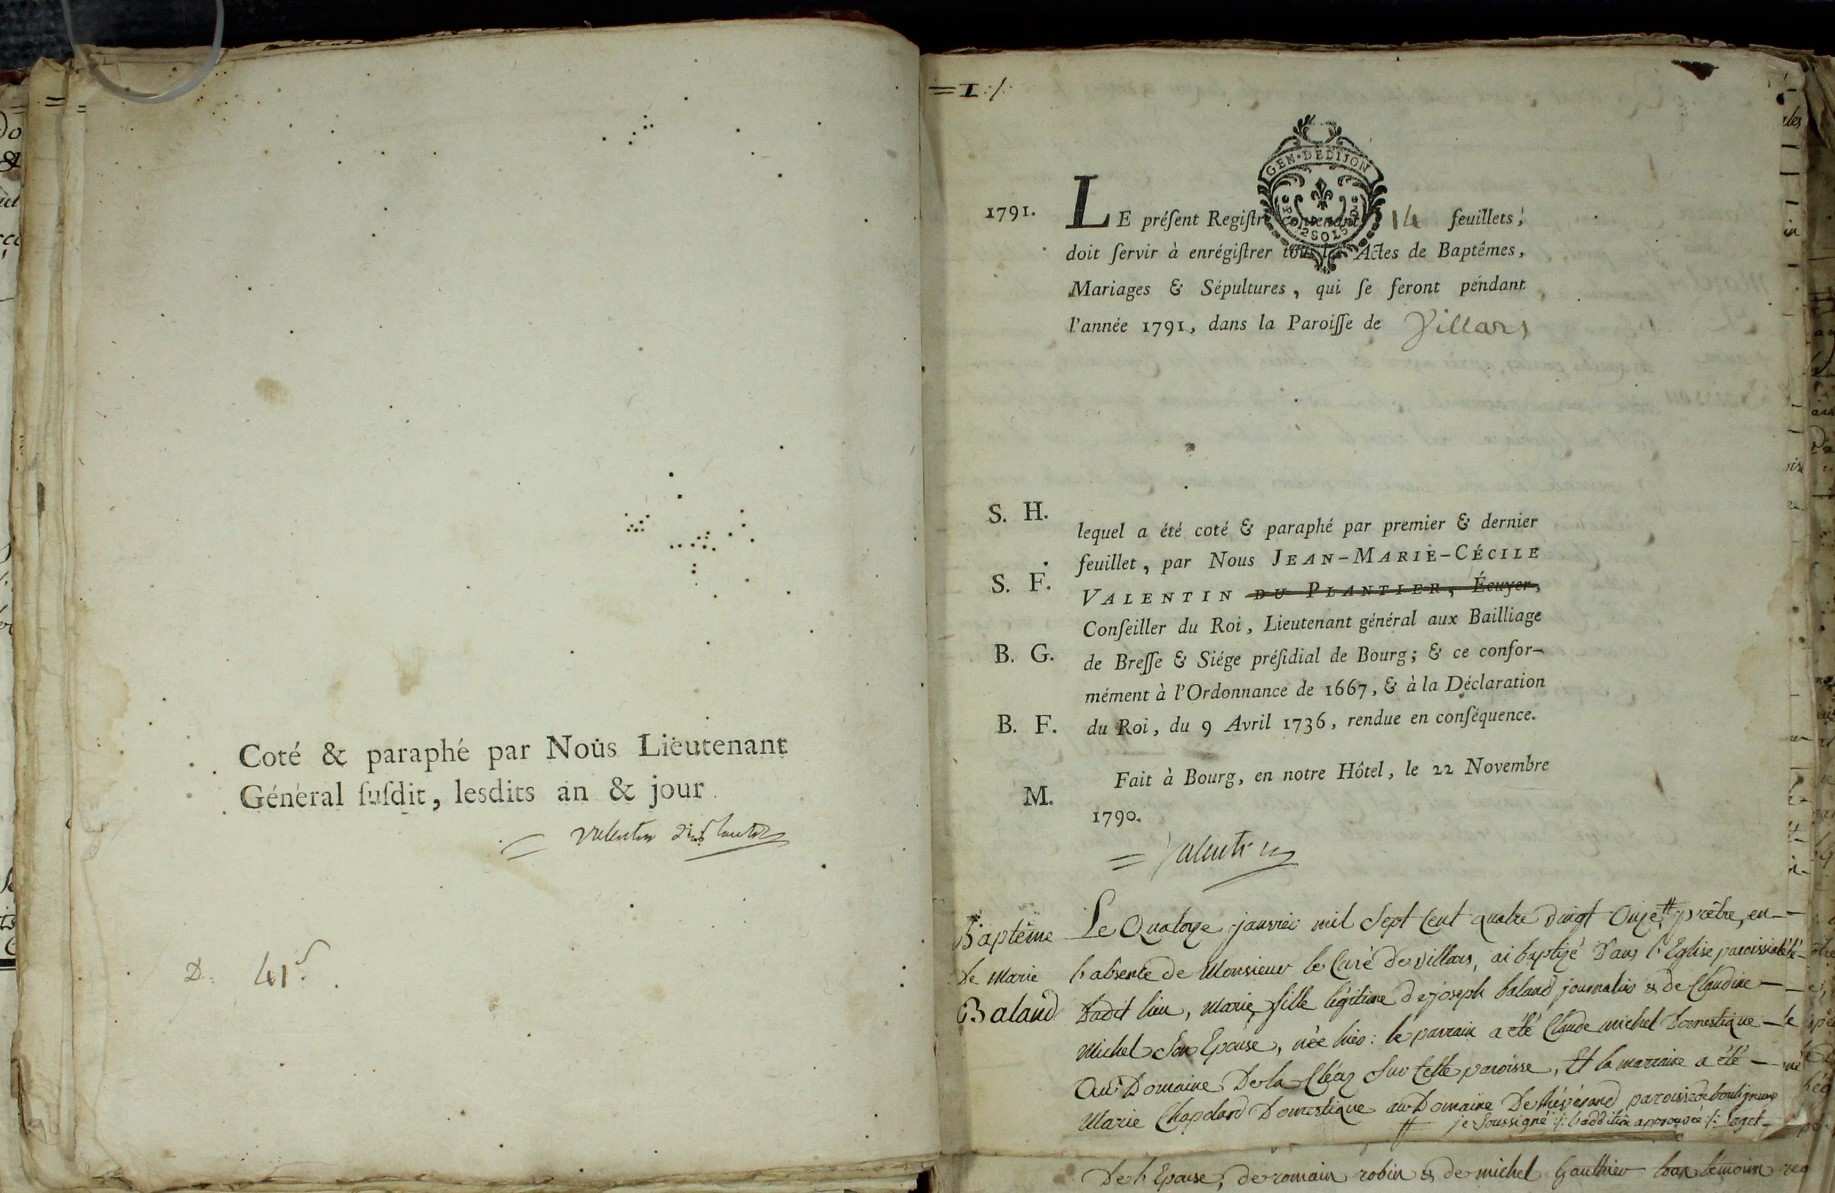 Coté & paraphé par Nous Lieutenant
Général ſuſdit, lesdits an & jour
Valentin
D. 41
= 1 ./.
GEN·DEDIJON
1791. LE préſent Regiſtre contenant 14 feuillets,
doit ſervir à enrégiſtrer tous les Actes de Baptêmes,
Mariages & Sépultures, qui ſe feront pendant
l'année 1791, dans la Paroiſſe de Villars
S. H.
S. F.
B. G.
B. F.
M.
lequel a été coté & paraphé par premier & dernier
feuillet, par Nous JEAN-MARIE-CÉCILE
VALENTIN DU PLANTIER, Écuyer,
Conſeiller du Roi, Lieutenant général aux Bailliage
de Breſſe & Siége préſidial de Bourg; & ce confor-
mément à l'Ordonnance de 1667, & à la Déclaration
du Roi, du 9 Avril 1736, rendue en conſéquence.
Fait à Bourg, en notre Hôtel, le 22 Novembre
1790.
= Valentin
Baptême
De Marie
Baland
Le Quatorze janvier mil Sept Cent quatre vingt Onze, prêtre, en
l'absence de Monsieur le Curé de villars, ai baptizé Dans l'Eglise paroissiale
Dudit lieu, Marie, fille légitime de joseph baland journalier & de Claudine
Michel Son Epouse, née hier: le parrain a été Claude michel Domestique
Au Domaine De la Cléaz Sur Cette paroisse, Et la marraine a été
Marie Chapeland Domestique au Domaine De paroisse de bouligneux
je Soussigné ./. l'addition approuvée ./. Loget
De l'Epouse, de romain robin & de michel Gauthier